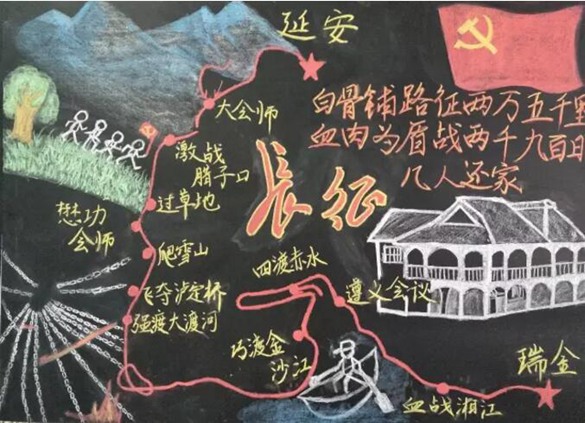 延安
白骨铺路征两万五千里
血肉为盾战两千九百日
几人还家
长征
大会师
激战
腊子口
过草地
懋功
会师
爬雪山
飞夺泸定桥
强渡大渡河
四渡赤水
遵义会议
巧渡金
沙江
血战湘江
瑞金